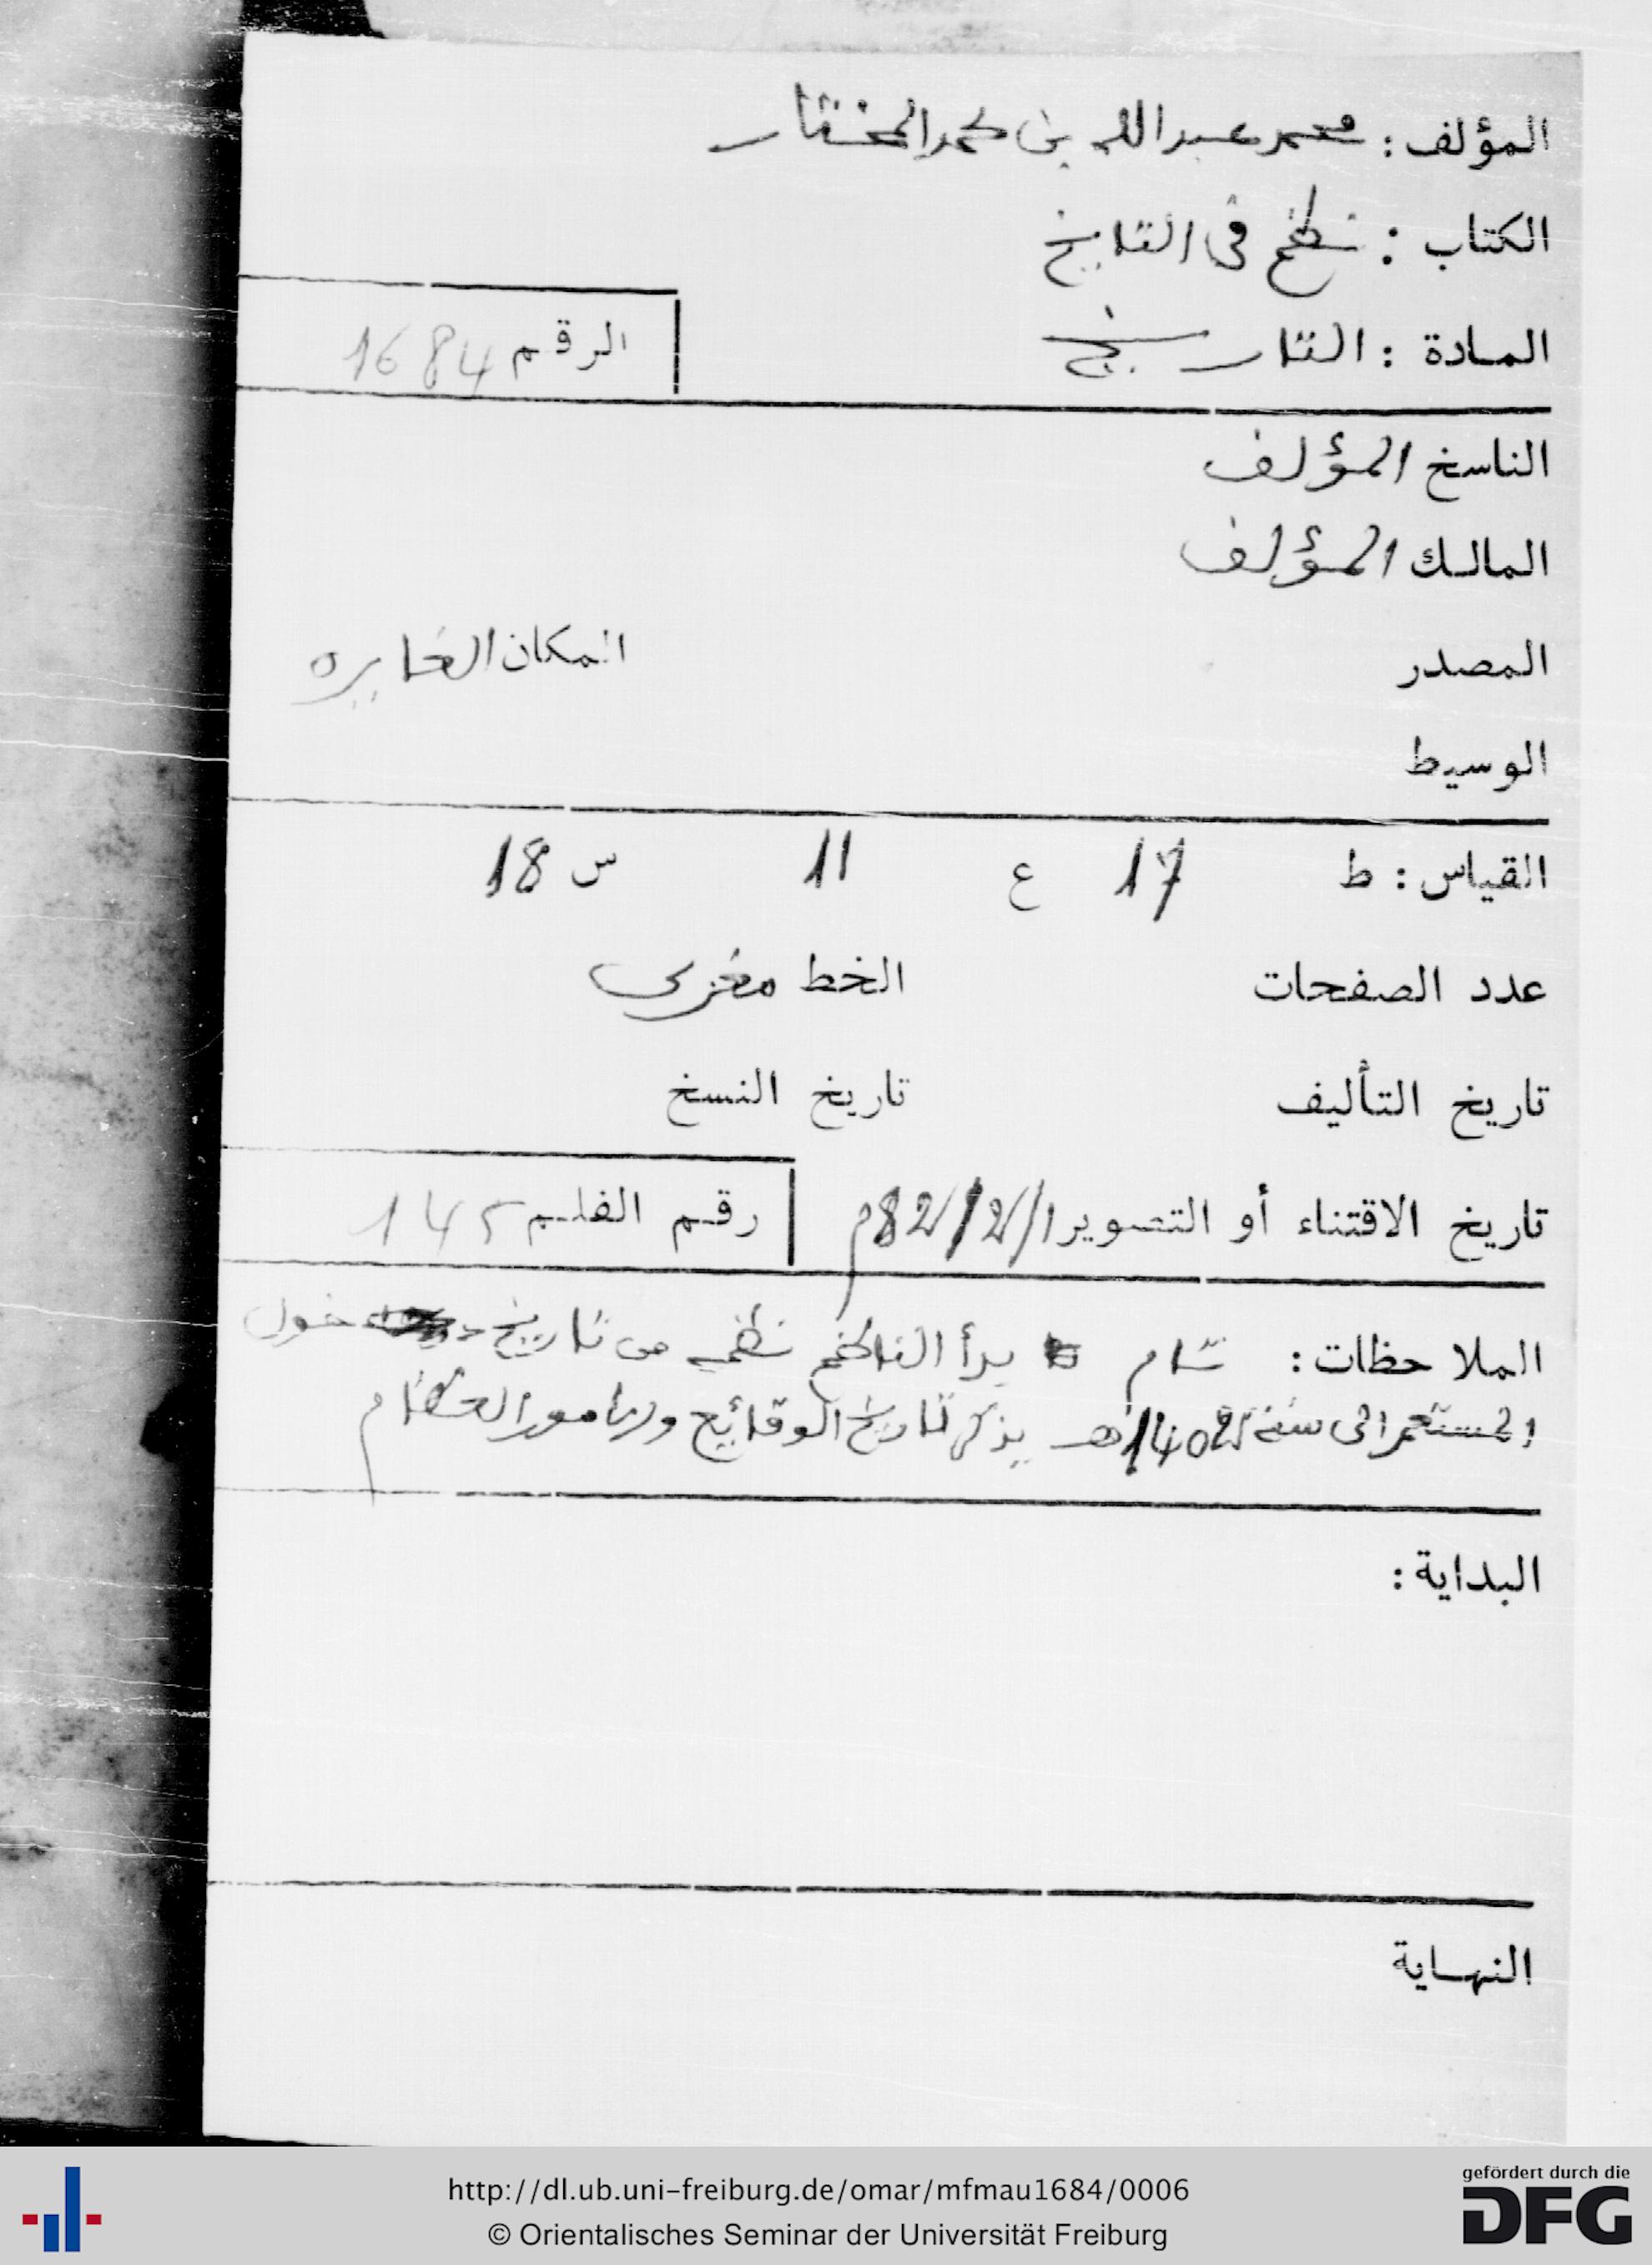 المؤلف : محمد عبد الله بن محمد المختار
الكتاب : نظم في التاريخ
المادة : التاريخ
الرقم 1684
الناسخ المؤلف
المالك المؤلف
المصدر
المكان
الوسيط
القياس : ط 17 ع 11 س 18
عدد الصفحات الخط مغربى
تاريخ التأليف تاريخ النسخ
تاريخ الاقتناء أو التصوير 1/2/82م رقم الفلم 145
الملاحظات : تام يبدأ الناظم نظمه من تاريخ دخول
المستعمر الى سنة 1402هـ يذكر تاريخ الوقائع
البداية :
النهاية
http://dl.ub.uni-freiburg.de/omar/mfmau1684/0006
© Orientalisches Seminar der Universität Freiburg
gefördert durch die
DFG